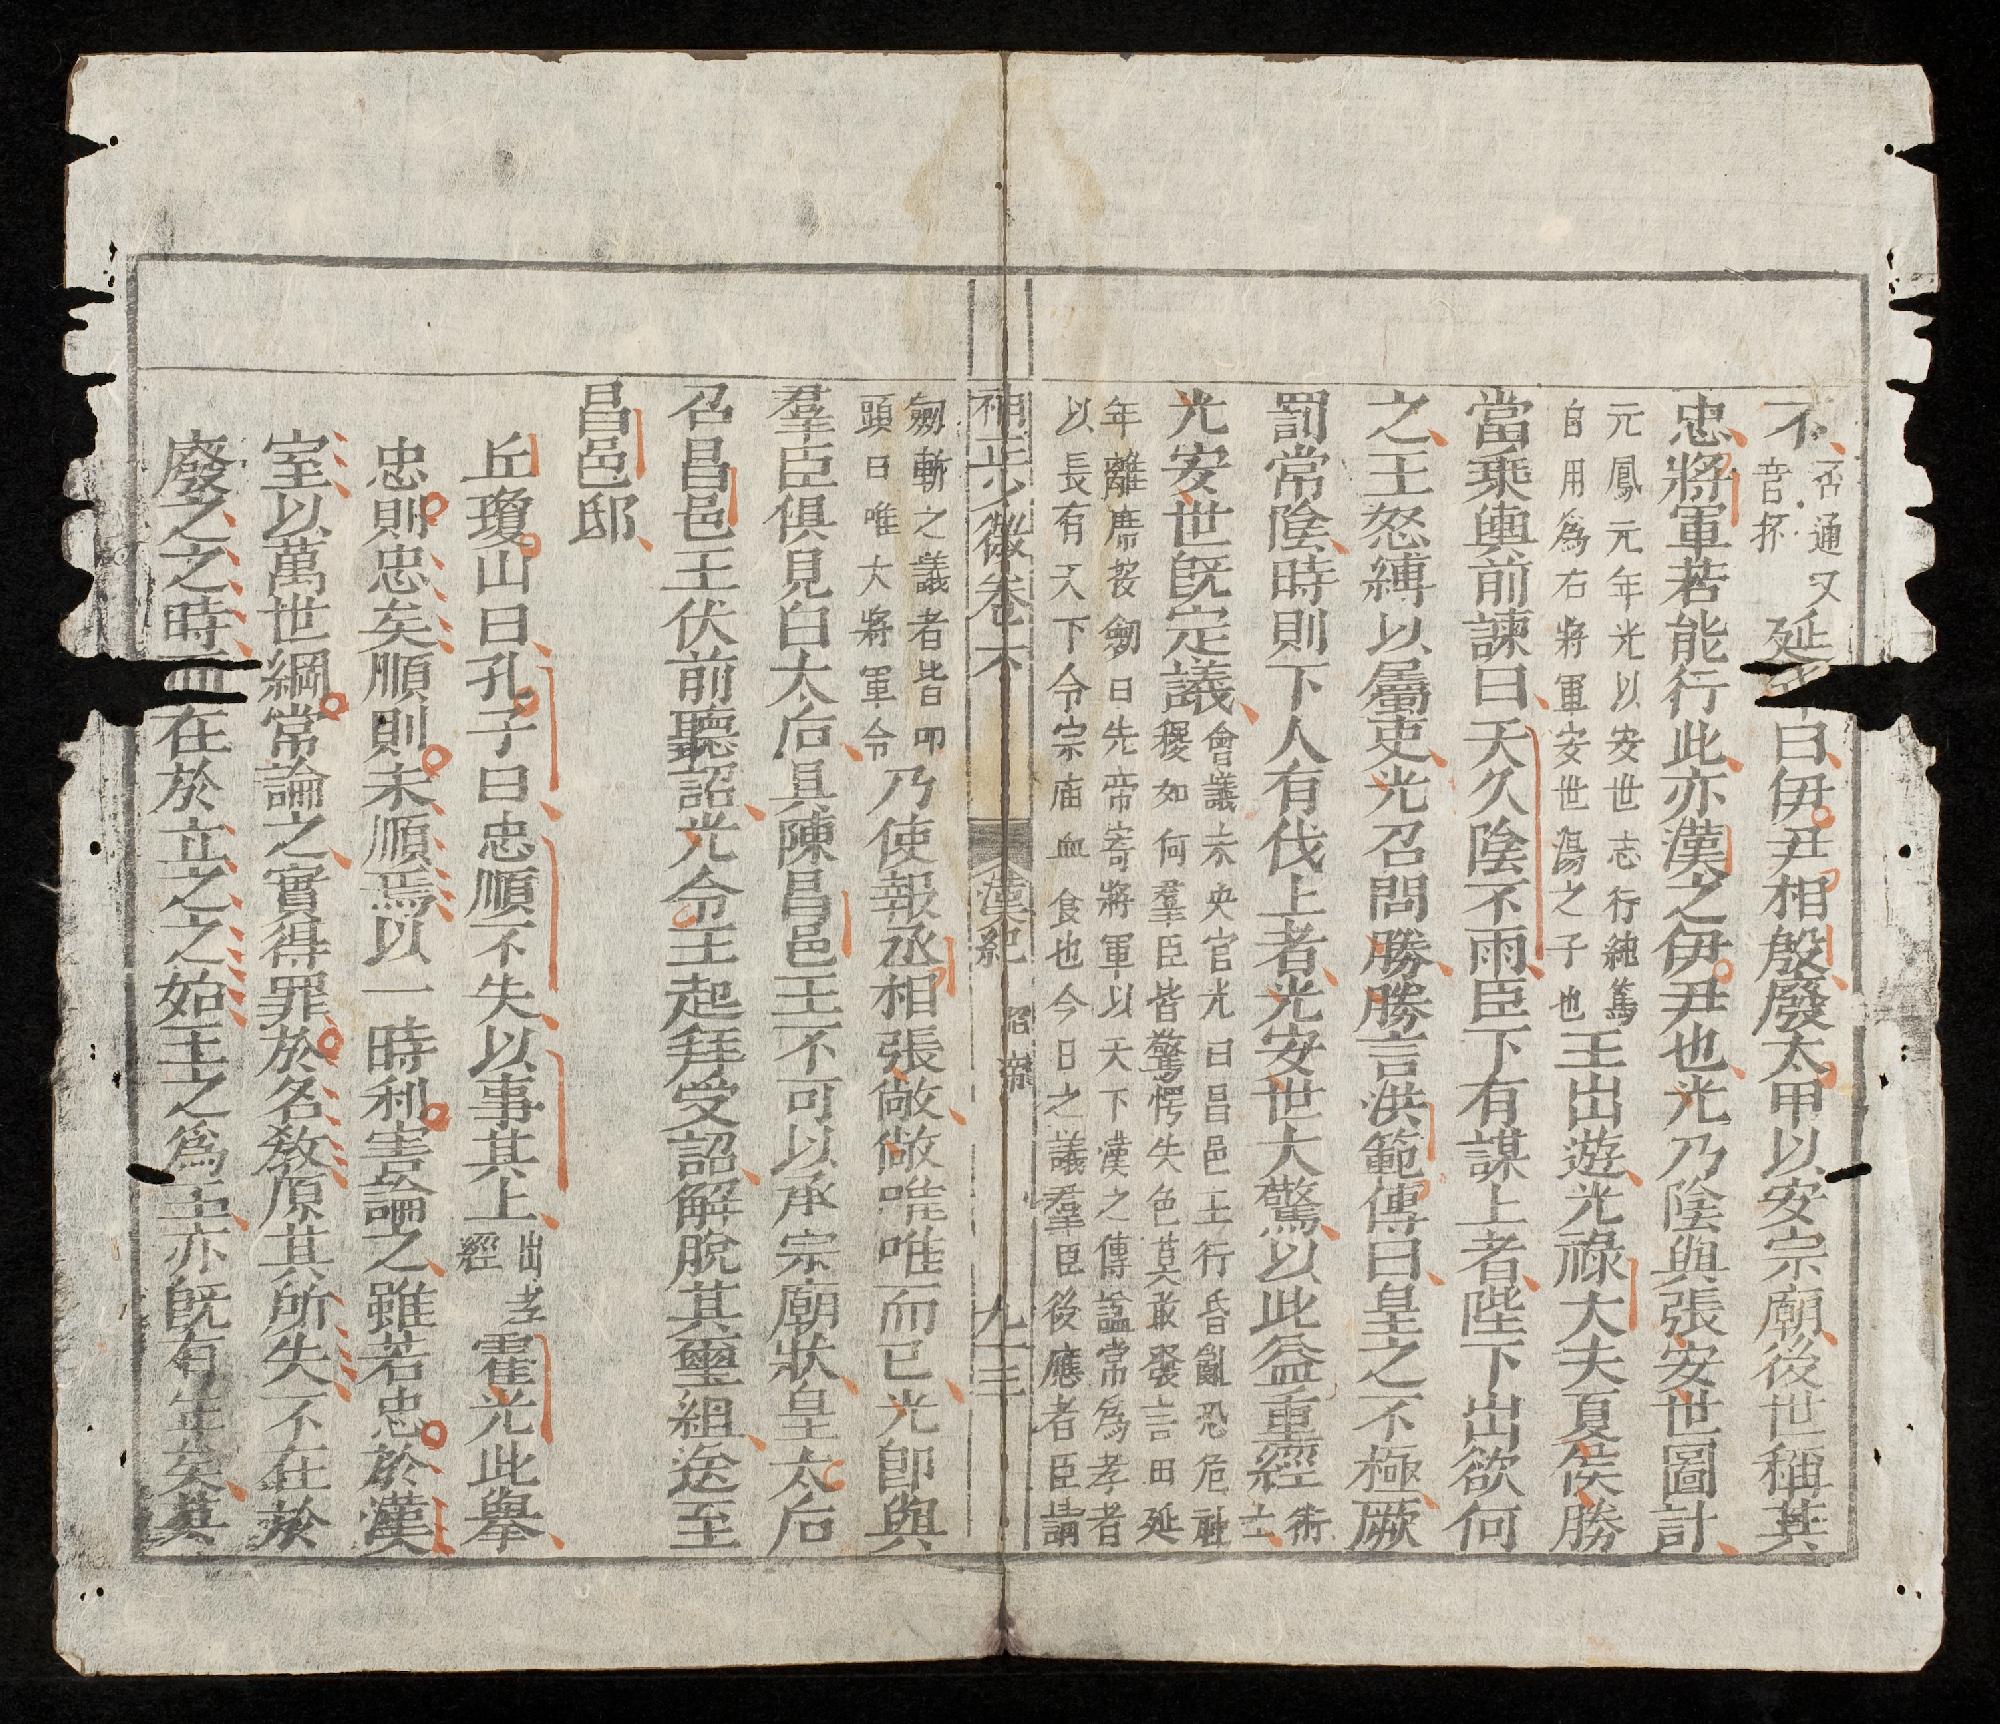 不否通又音抔延年曰伊尹相殷廢太甲以安宗廟後世稱其
忠將軍若能行此亦漢之伊尹也光乃陰與張安世圖計
元鳳元年光以安世志行純篤
自用爲右將軍安世湯之子也王出遊光祿大夫夏侯勝
當乘輿前諫曰天久陰不雨臣下有謀上者陛下出欲何
之王怒縛以屬吏光召問勝勝言洪範傳曰皇之不極厥
罰常陰時則下人有伐上者光安世大驚以此益重經術士
光安世既定議
會議未央官光曰昌邑王行昏亂恐危社
稷如何羣臣皆驚愕失色莫敢發言田延
年離席按劒曰先帝寄將軍以天下漢之傳諡常爲孝者
以長有天下令宗庙血食也今日之議羣臣後應者臣請
補正少微卷六 漢紀 昭帝 九十三
劒斬之議者皆叩
頭曰唯大將軍令乃使報丞相張敞敞唯唯而已光卽與
羣臣俱見白太后具陳昌邑王不可以承宗廟狀皇太后
召昌邑王伏前聽詔光令王起拜受詔解脫其璽組送至
昌邑邸
丘瓊山曰孔子曰忠順不失以事其上出孝經霍光此舉
忠則忠矣順則未順焉以一時利害論之雖若忠於漢
室以萬世綱常論之實得罪於名敎原其所失不在於
廢之之時而在於立之之始王之爲王亦既有年矣其